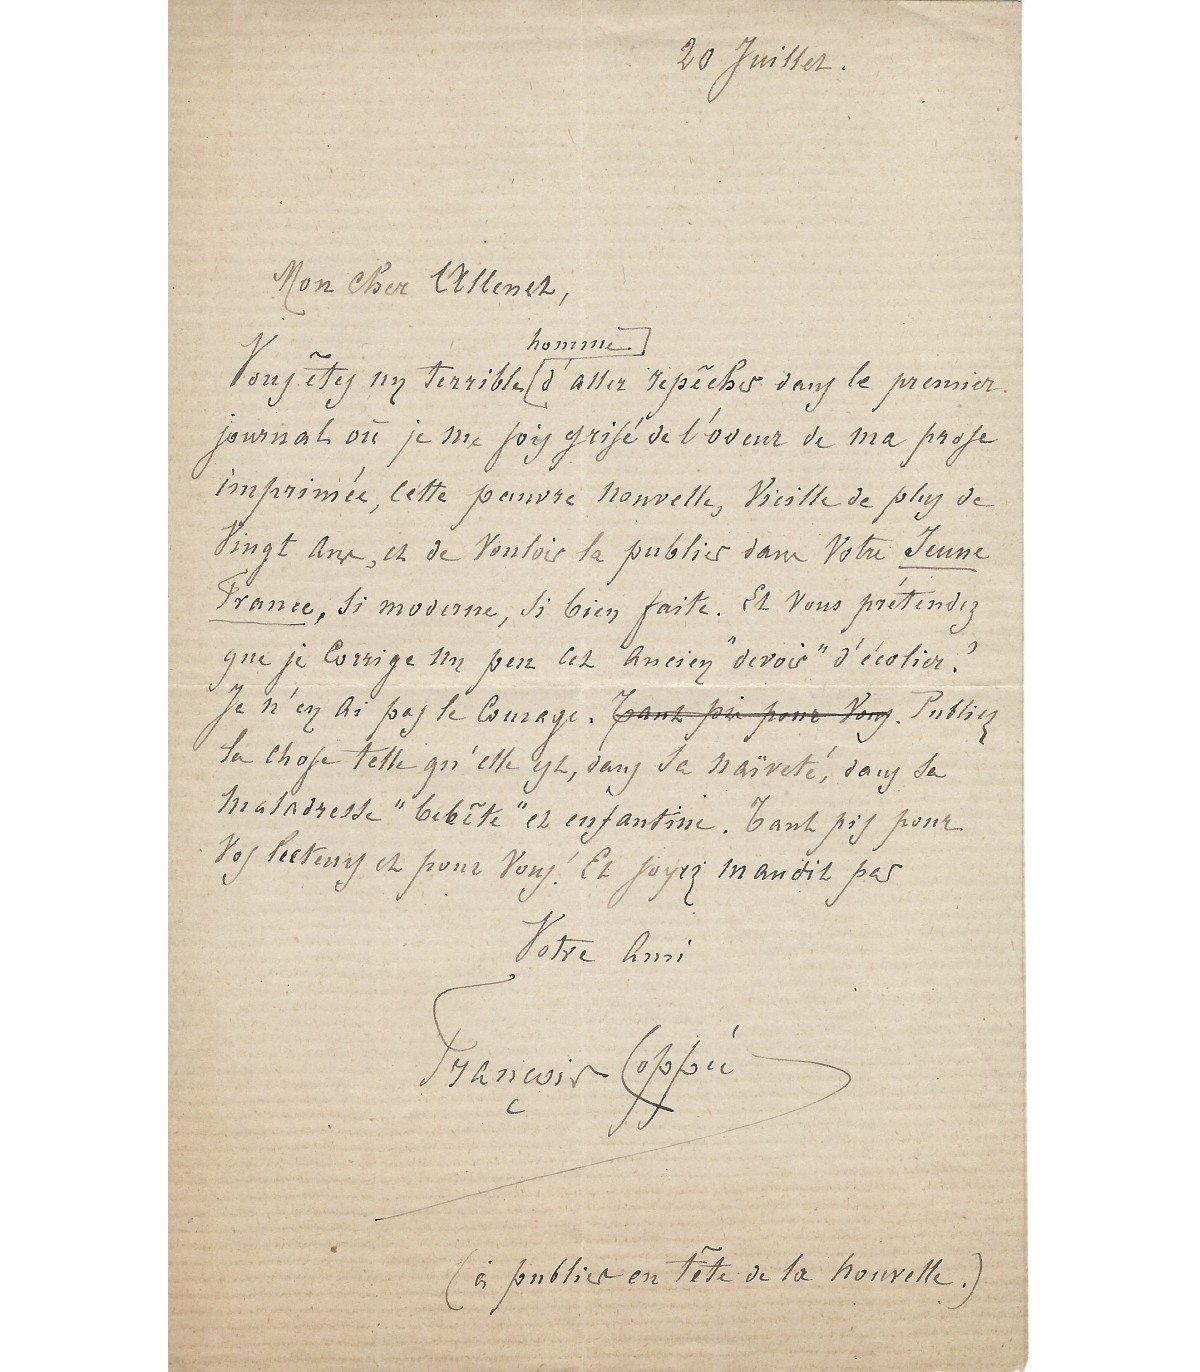 20 Juillet.
Mon cher Allenet,
homme
Vous êtes un terrible d'aller repêcher dans le premier
journal où je me sois grisé de l'odeur de ma prose
imprimée, cette pauvre nouvelle, vieille de plus de
vingt ans, et de vouloir la publier dans votre Jeune
France, si moderne, si bien faite. Et vous prétendez
que je corrige un peu cet ancien "devoir" d'écolier?
Je n'en ai pas le courage. Tant pis pour vous. Publiez
la chose telle qu'elle est, dans sa naïveté, dans sa
maladresse "bebête" et enfantine. Tant pis pour
vos lecteurs et pour vous! Et soyez maudit par
Votre ami
François Coppée
(à publier en tête de la nouvelle.)